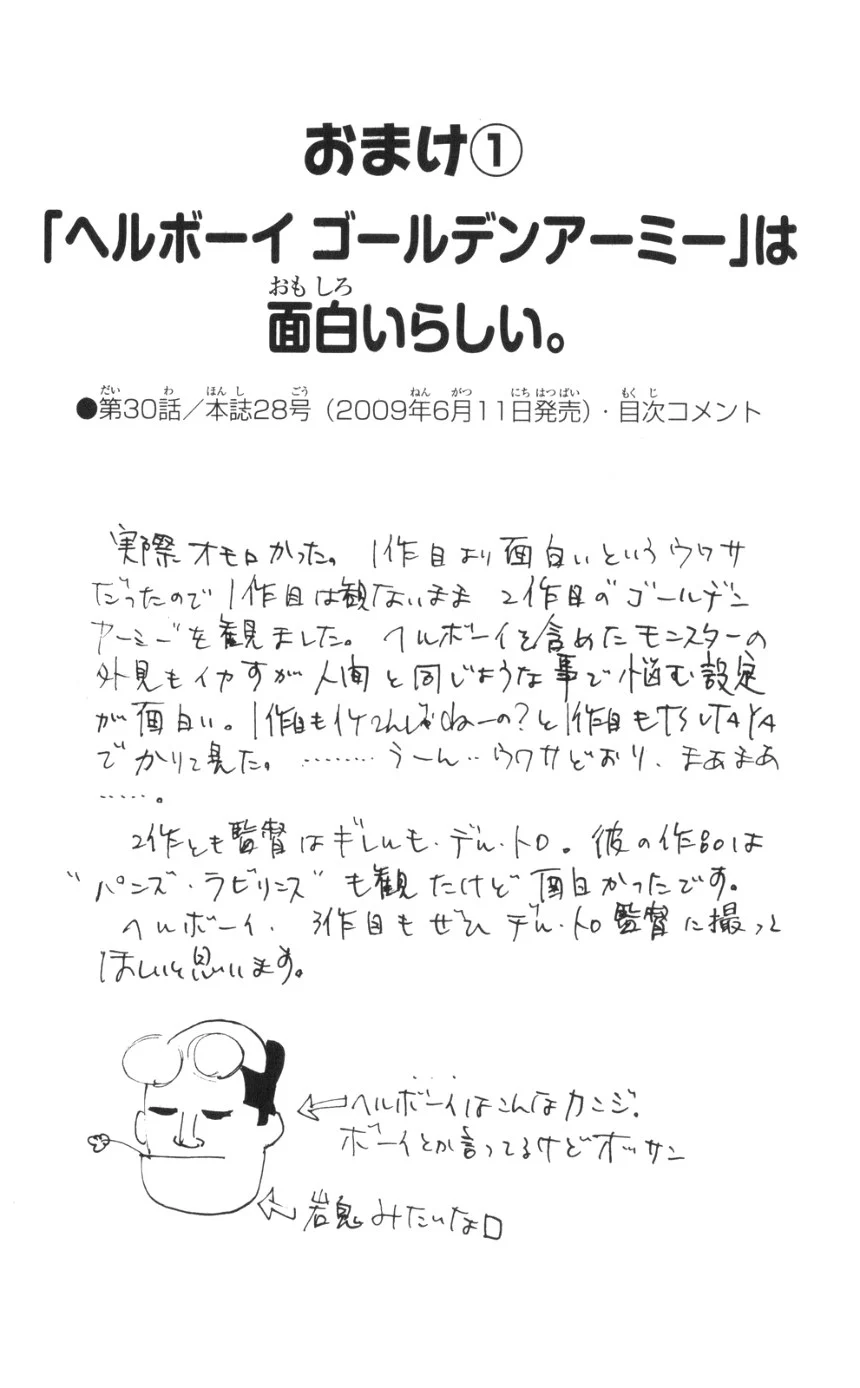 おまけ①
「ヘルボーイ ゴールデンアーミー」は
おもしろ
面白いらしい。
だい わ ほんし ごう ねん がつ にちはつばい もくじ
●第30話／本誌28号（2009年6月11日発売）・目次コメント
実際オモロかった。1作目より面白いというウワサ
だったので1作目は観ないまま 2作目の"ゴールデン
アーミー"を観ました。ヘルボーイを含めたモンスターの
外見もイカすが人間と同じような事で悩む設定
が面白い。1作目もイケてんじゃねーの？と1作目もTSUTAYA
でかりて見た。………うーん‥ウワサどおり、まあまあ
……。
2作とも監督はギレルモ・デル・トロ。彼の作品は
"パンズ・ラビリンス"も観たけど面白かったです。
ヘルボーイ、3作目もぜひデル・トロ監督に撮って
ほしいと思います。
ヘルボーイはこんなカンジ。
ボーイとか言ってるけどオッサン
岩鬼みたいな口